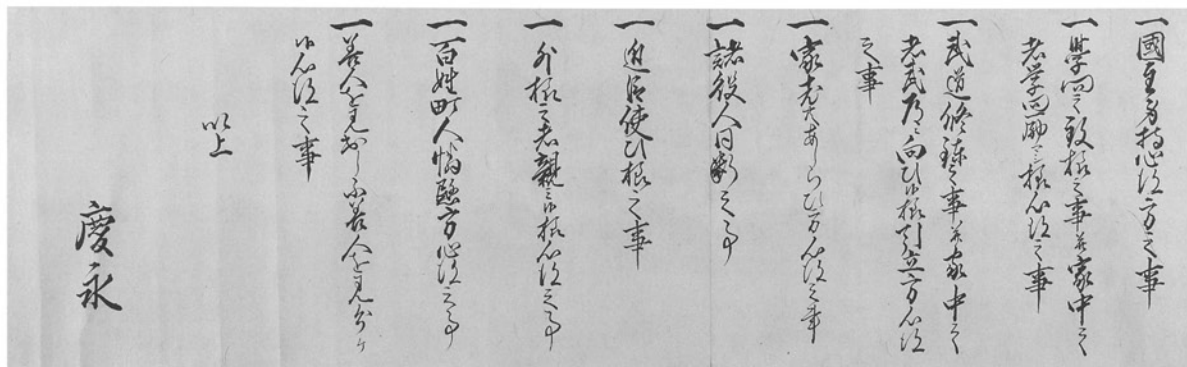 一國主身持心得方之事
一学問之致様之事并家中之
者学問励候様心得之事
一武道修練之事并家中之
者武道ニ向ひ候様引立方心得
之事
一家老大あしらひ方心得之事
一諸役人同断之事
一近臣使ひ様之事
一外様之者親ミ候様心得之事
一百姓町人憐愍方心得之事
一善人を見出し不善人を見分ケ
候心得之事
以上
慶永